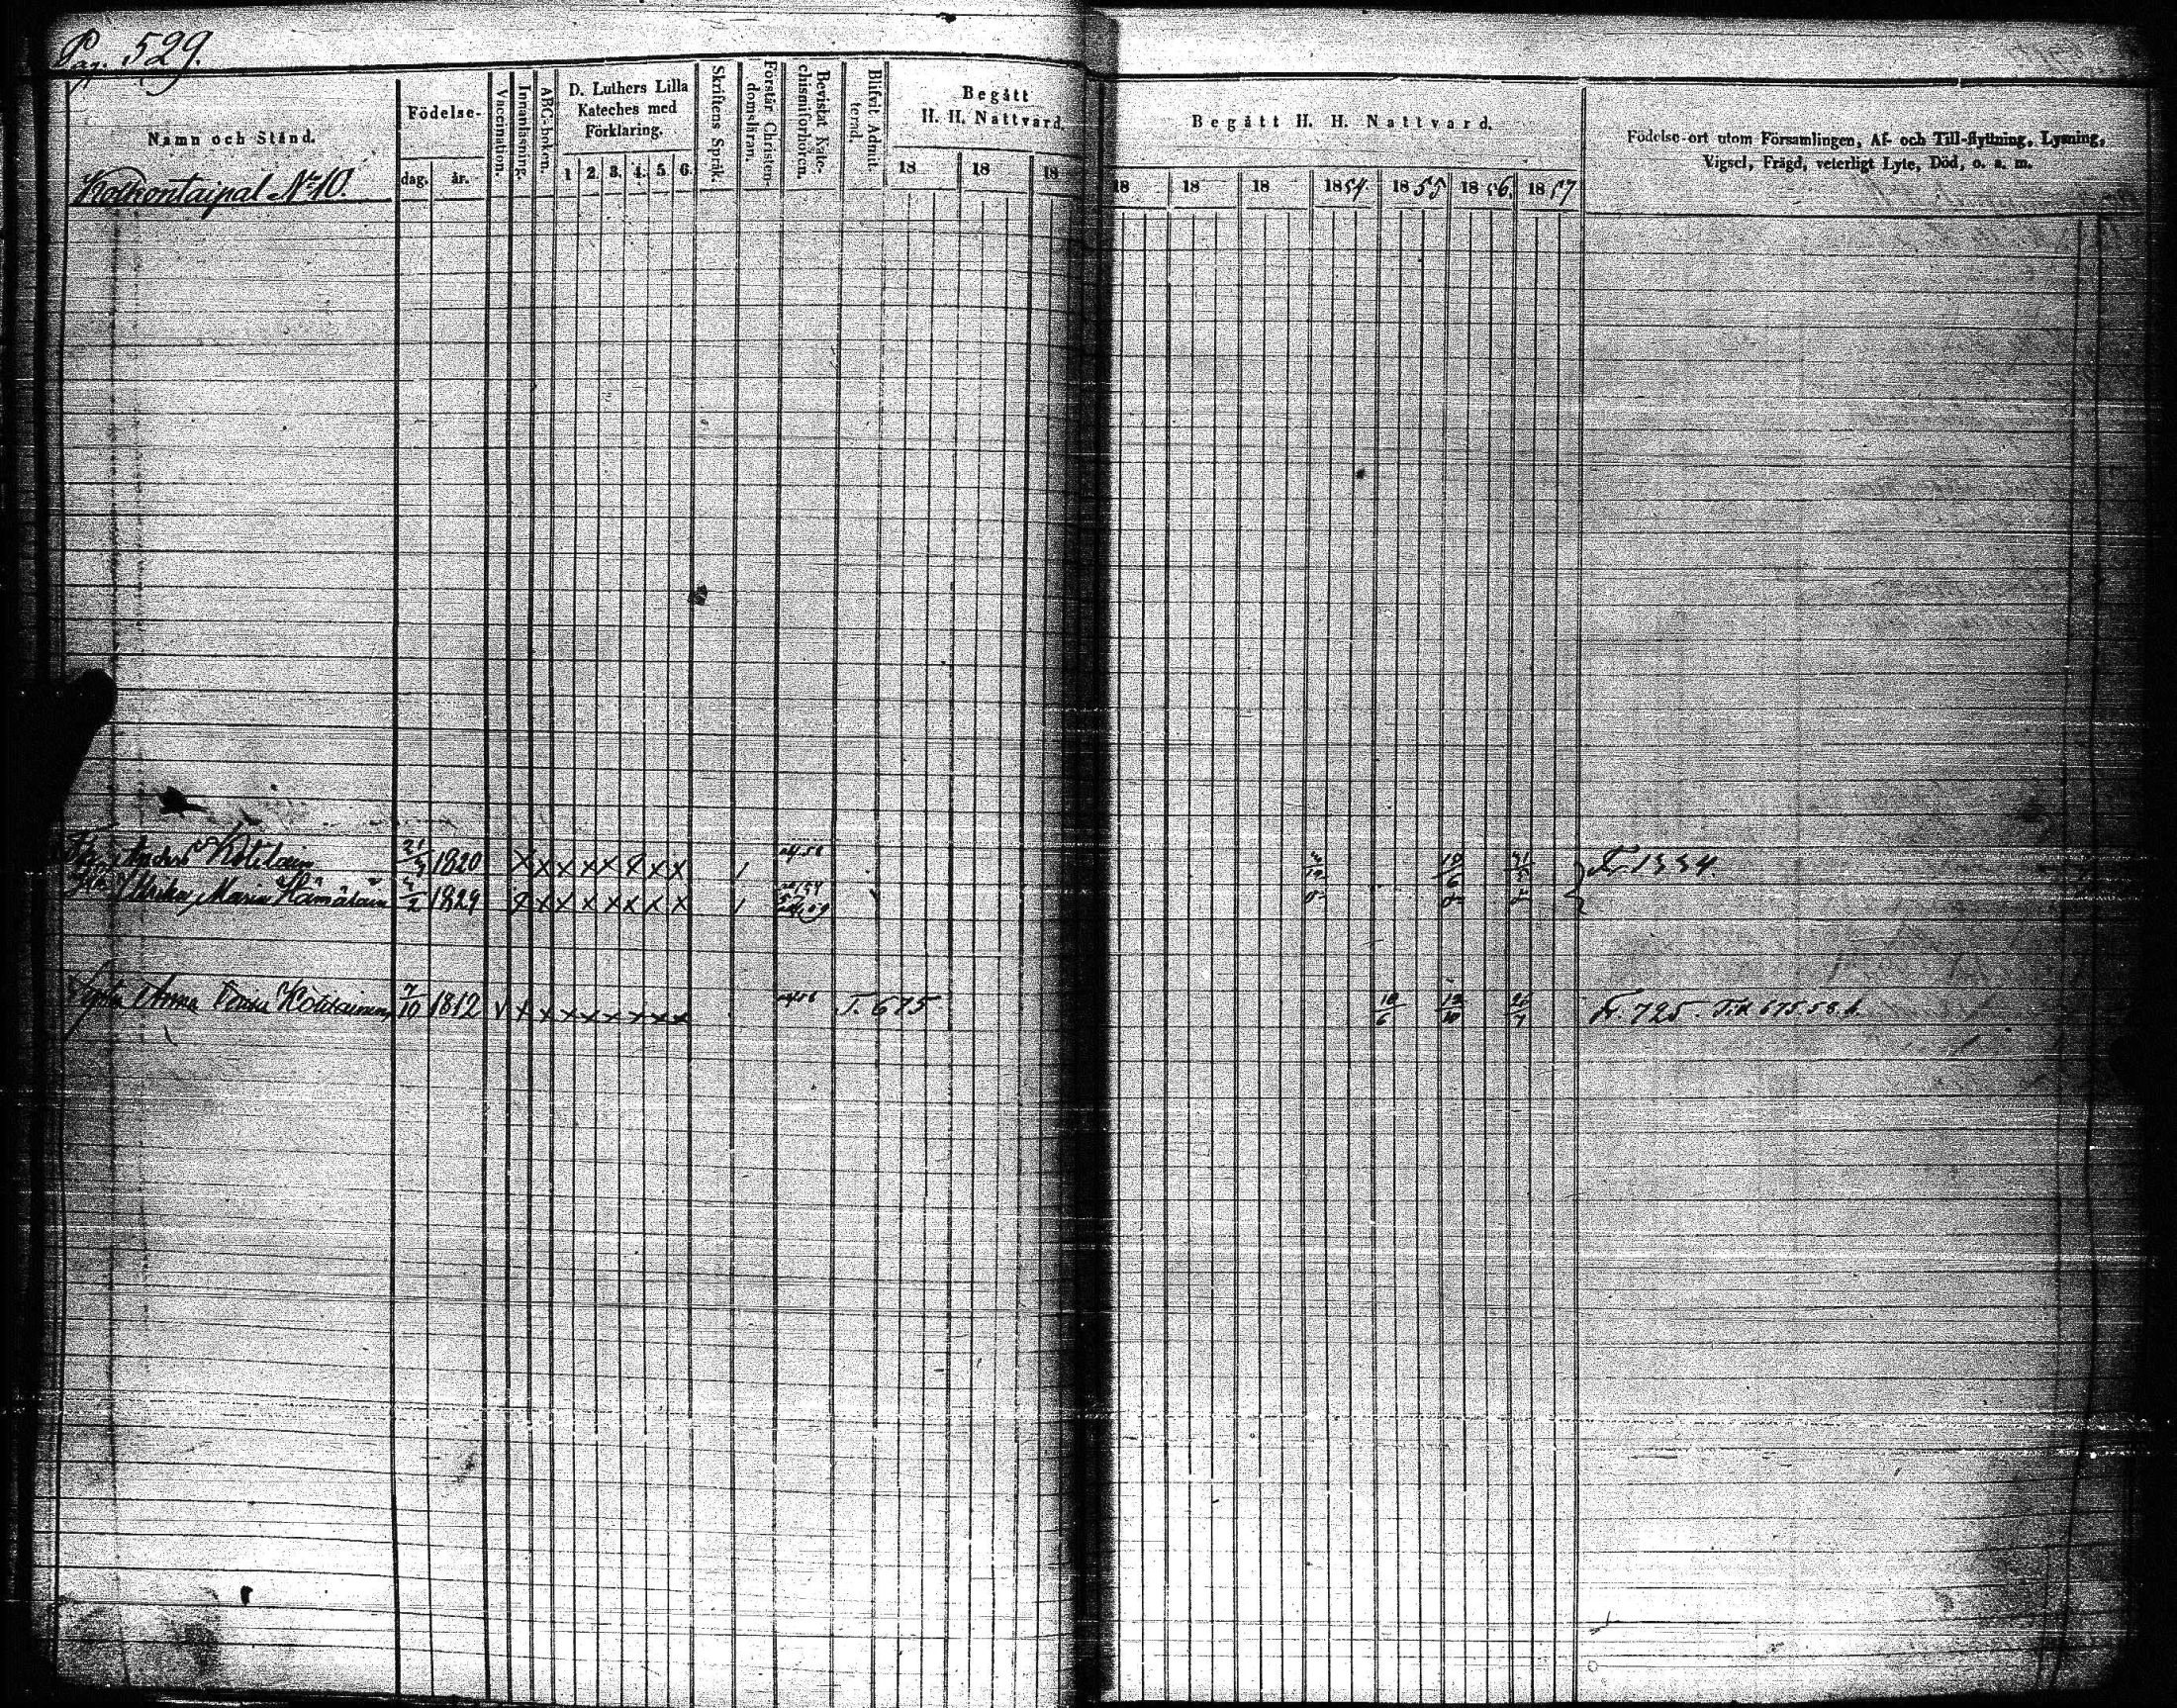 Pag. 529.
Namn och Stånd.
Kolkontaipal No 10.
Födelse-
dag. år.
Vaccination.
Innanläsning.
ABC-boken.
D. Luthers Lilla
Kateches med
Förklaring.
1 2. 3. 4. 5. 6.
Skriftens Språk.
Förstår Christen-
domsläran.
Bevistat Kate-
chismiförhören.
Blifvit Admit-
terad.
Begått
H. H. Nattvard.
18 18 18
Begått H. H. Nattvard.
18 18 18 1854 1855 1856. 1857
Födelse-ort utom Församlingen, Af- och Till-flyttning, Lysning,
Vigsel, Frägd, veterligt Lyte, Död, o. s. m.
Anders Kotilain 1820 x x x x x x x Fr. 1334.
Ulrika Maria Hämäläin 2 1829 x x x x x x
Anna 7/10 1812 x x x x x x x T. 675 10/6 Fr. 725. Till 675. 58.